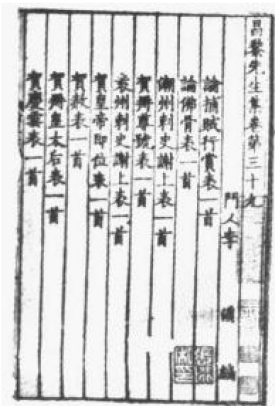 昌黎先生集卷第三十九
門人李 漢 編
論捕賊行賞表一首
論佛骨表一首
潮州刺史謝上表一首
賀冊尊號表一首
袁州刺史謝上表一首
賀皇帝即位表一首
賀赦表一首
賀冊皇太后表一首
賀慶雲表一首